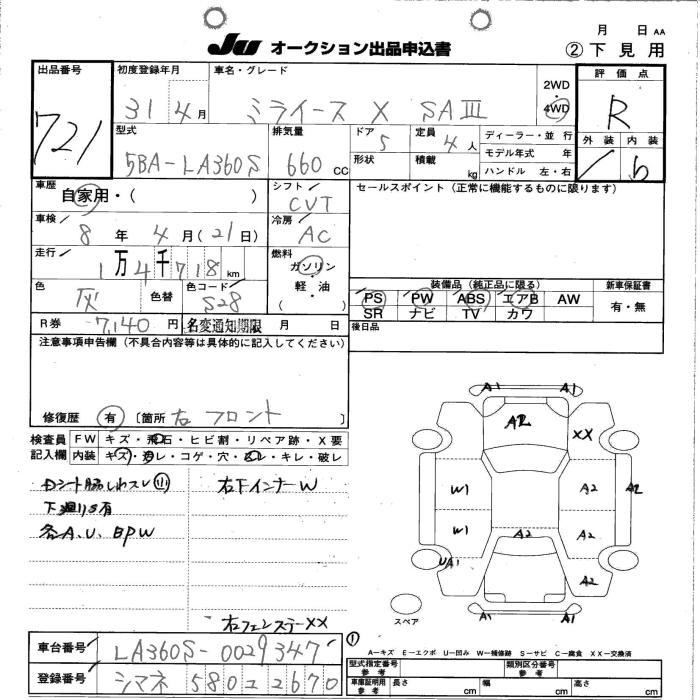 月 日 AA
JU オークション出品申込書 ②下見用
出品番号 721
初度登録年月 31 4月
車名・グレード ミライース X SAⅢ
2WD・4WD
評価点 R
外装 内装 b
型式 5BA-LA360S
排気量 660 CC
ドア 5
形状
定員 4人
積載 kg
ディーラー・並行
モデル年式 年
ハンドル 左・右
車歴 自家用・( )
シフト CVT
セールスポイント (正常に機能するものに限ります)
車検 8年 4月(21日)
冷房 AC
走行 1万4千718km
燃料 ガソリン・軽油( )
色 灰 色替
色コード S28
装備品(純正品に限る) 新車保証書
PS PW ABS エアB AW 有・無
SR ナビ TV カワ
R券 7,140円 名変通知期限 月 日
後日品
注意事項申告欄(不具合内容等は具体的に記入してください)
修復歴 有 〔箇所 右フロント
検査員記入欄
FW キズ・飛石・ヒビ割・リペア跡・X要
内装 キズ・汚レ・コゲ・穴・スレ・キレ・破レ
下廻りS有
各A.U.BPW
右下インナーW
右フェンステーXX
A1 A1
A2 XX
W1 A2 A2
W1 A2 A2
UA1 A2
A1 A1
スペア
A-キズ E-エクボ U-凹み W-補修跡 S-サビ C-腐食 XX-交換済
車台番号 LA360S-0029347
登録番号 シマネ 580 2670
①
型式指定番号 参考 類別区分番号 参考
車庫証明用 参考 長さ cm 幅 cm 高さ cm